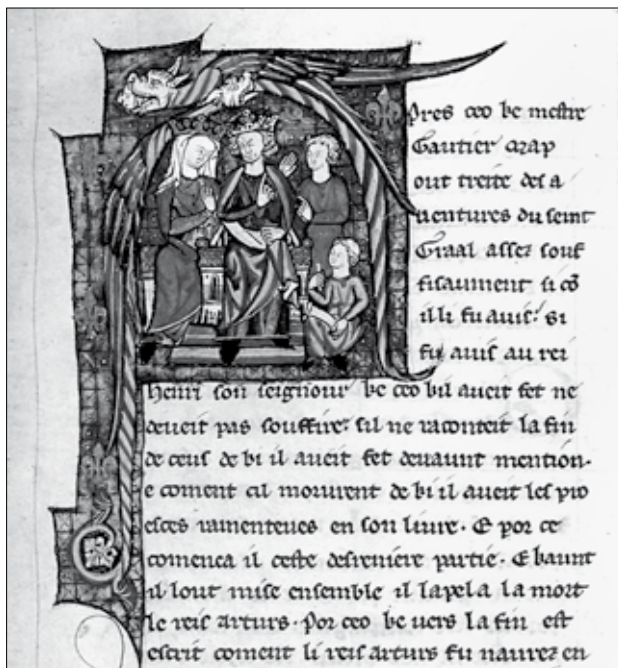 Apres ceo ke mestre
Gautier map
out treite des a
uentures du seint
Graal assez souf
fisaument si cō
il li fu auis. Si
fu auis au rei
henri son seignour ke ceo kil aueit fet ne
deueit pas souffire. sil ne raconteit la fin
de ceus de ki il aueit fet deuaunt mention.
e coment cil morurent de ki il aueit les pro
esces ramenteues en son liure. E por ce
comenca il ceste desreniere partie. E kaunt
il lout mise ensemble il lapela la mort
le reis arturs. Por ceo ke uers la fin est
escrit coment li reis arturs fu naurez en